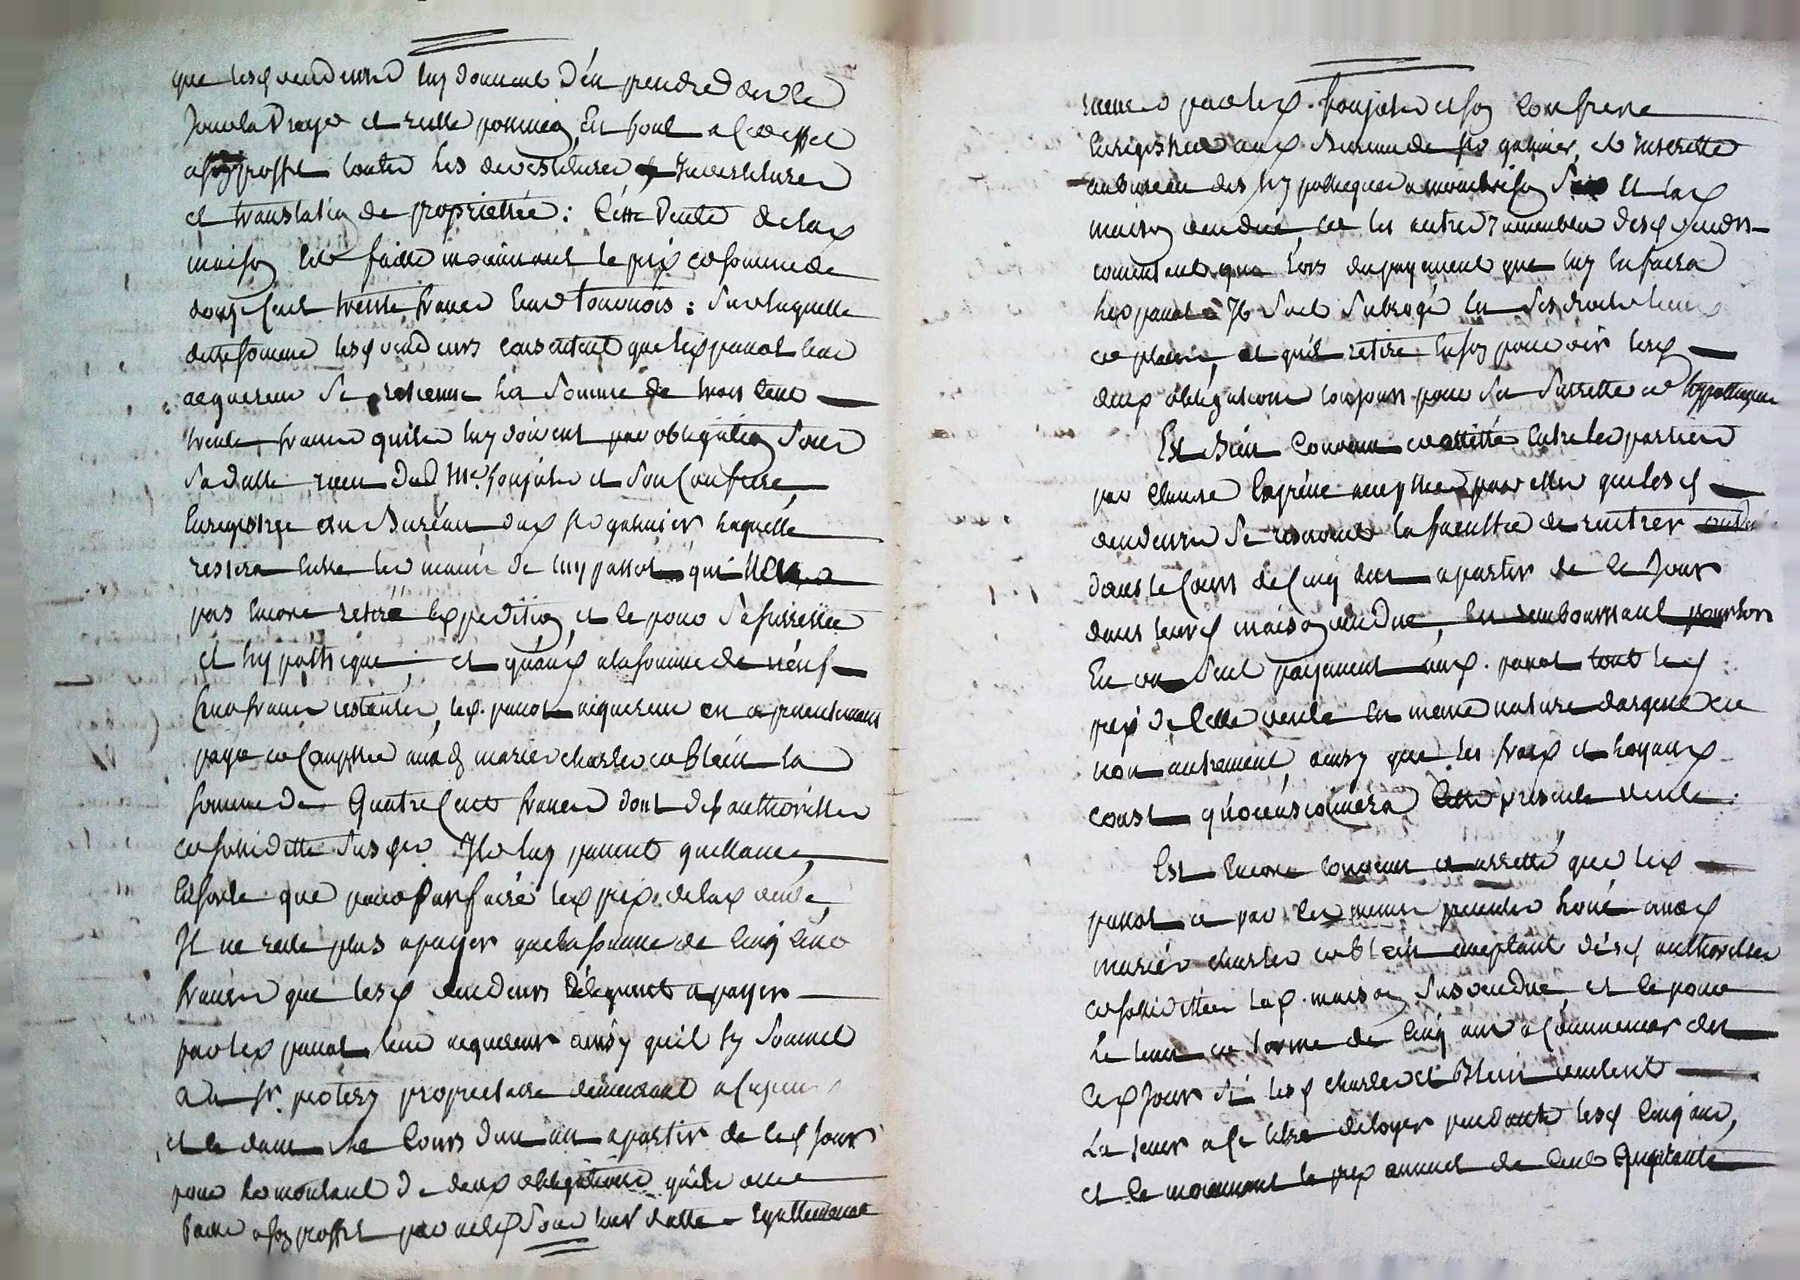 que lesq vendeurs luy donnent d'en prendre des ce
Jour la Vraye et réelle et font a cet effet
a son proffit toutes les devestitures Investitures
et translation de proprietée : Cette Vente de lad
maison est faitte moienant le prix et somme de
douze cent trente francs tournois : sur laquelle
ditte somme lesq vendeurs consentent que led panot leur
acquereur se retienne la somme de trois cent
trente francs qu'ils luy doivent par obligation sous
sa datte reçu dud Me. foujols et son Confrere,
Enregistrée au Bureau dud garnier laquelle
restera entre les mains de luy panot qui
pas encore retiré expedition, et ce pour sa suretée
et hypotheque ; et quand a la somme de neuf
Cent francs restantes, led. panot acquereur en a presentement
payé et Compté auxd mariés charles et Blein la
somme de Quatre Cent francs dont des authorisés
et soliditte susdit Ils luy passent quittance,
En sorte que pour Parfaire led prix de lad vente,
Il ne reste plus a payer que la somme de Cinq Cent
francs que lesd vendeurs déleguent a payer
par led panot leur acquereur ainsy qu'il sy soumet
a un Sr. proprietaire demeurant
et ce dans le Cours d'un an a partir de ced Jour
pour le montant de deux obligations qu'ils ont
faitte a son proffit sous leur datte Egallement
reçues par led. foujols et son Confrere
Enregistrée aux Bureau de garnier, et Inscritte
au bureau des hypotheques a montbrison et lad
maison vendue, et les autres Immeubles desd vendrs
consentent que lors du payement que luy en faira
led panot Il soit subrogé en ses droits
et place, et qu'il retire en son pouvoir lesd
deux obligations toujours pour sa surette et hypotheque
Est Bien Convenu et arretté Entre les parties
par Clause Expresse acceptée par elles que lesd
vendeurs se reservent la faculttée de rentrer
dans le Cours de Cinq ans a partir de ce Jour
dans leurd maison vendue, En remboursant
En un seul payement aud. panot tout led
prix de Cette vente En meme nature d'argent et
non autrement, ainsy que les fraix et loyaux
coust qu'occasionnera Cette presente vente.
Est Encore convenu et arretté que led
panot a par les memes presentes loué auxd
mariés charles et Blein acceptant desd authorittes
et solidittés lad. maison susvendue, et ce pour
le tems et terme de Cinq ans a Commencer des
ced Jour si lesd charles et Blein veulent
La tenir a ce titre de loyer pendant lesd Cinq ans,
et ce moienant le prix annuel de Cent Cinquante